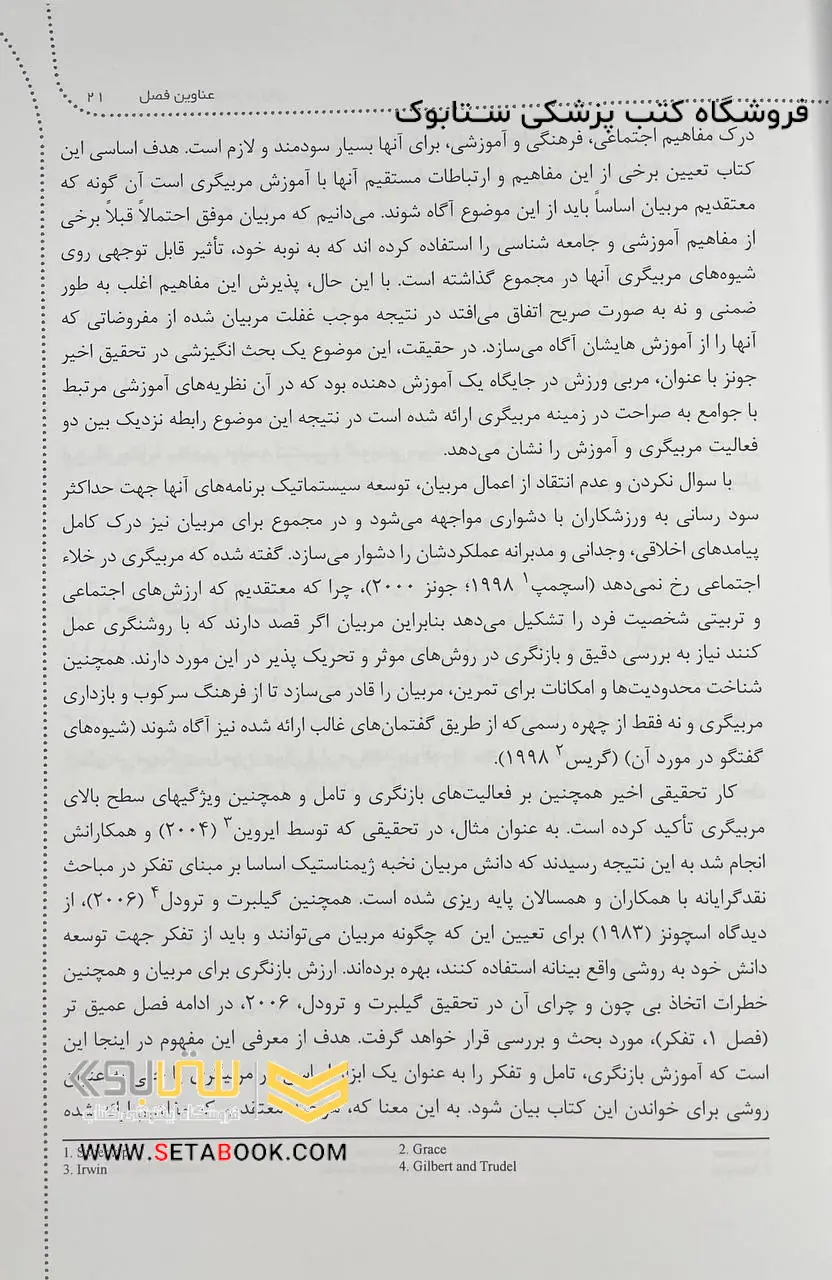 عناوین فصل ۲۱
فروشگاه کتب پزشکی ستابوک
درک مفاهیم اجتماعی، فرهنگی و آموزشی، برای آنها بسیار سودمند و لازم است. هدف اساسی این
کتاب تعیین برخی از این مفاهیم و ارتباطات مستقیم آنها با آموزش مربیگری است آن گونه که
معتقدیم مربیان اساساً باید از این موضوع آگاه شوند. می‌دانیم که مربیان موفق احتمالاً قبلاً برخی
از مفاهیم آموزشی و جامعه شناسی را استفاده کرده اند که به نوبه خود، تأثیر قابل توجهی روی
شیوه‌های مربیگری آنها در مجموع گذاشته است. با این حال، پذیرش این مفاهیم اغلب به طور
ضمنی و نه به صورت صریح اتفاق می‌افتد در نتیجه موجب غفلت مربیان شده از مفروضاتی که
آنها را از آموزش هایشان آگاه می‌سازد. در حقیقت، این موضوع یک بحث انگیزشی در تحقیق اخیر
جونز با عنوان، مربی ورزش در جایگاه یک آموزش دهنده بود که در آن نظریه‌های آموزشی مرتبط
با جوامع به صراحت در زمینه مربیگری ارائه شده است در نتیجه این موضوع رابطه نزدیک بین دو
فعالیت مربیگری و آموزش را نشان می‌دهد.
با سوال نکردن و عدم انتقاد از اعمال مربیان، توسعه سیستماتیک برنامه‌های آنها جهت حداکثر
سود رسانی به ورزشکاران با دشواری مواجهه می‌شود و در مجموع برای مربیان نیز درک کامل
پیامدهای اخلاقی، وجدانی و مدبرانه عملکردشان را دشوار می‌سازد. گفته شده که مربیگری در خلاء
اجتماعی رخ نمی‌دهد (اسچمپ۱ ۱۹۹۸؛ جونز ۲۰۰۰)، چرا که معتقدیم که ارزش‌های اجتماعی
و تربیتی شخصیت فرد را تشکیل می‌دهد بنابراین مربیان اگر قصد دارند که با روشنگری عمل
کنند نیاز به بررسی دقیق و بازنگری در روش‌های موثر و تحریک پذیر در این مورد دارند. همچنین
شناخت محدودیت‌ها و امکانات برای تمرین، مربیان را قادر می‌سازد تا از فرهنگ سرکوب و بازداری
مربیگری و نه فقط از چهره رسمی‌که از طریق گفتمان‌های غالب ارائه شده نیز آگاه شوند (شیوه‌های
گفتگو در مورد آن) (گریس۲ ۱۹۹۸).
کار تحقیقی اخیر همچنین بر فعالیت‌های بازنگری و تامل و همچنین ویژگیهای سطح بالای
مربیگری تأکید کرده است. به عنوان مثال، در تحقیقی که توسط ایروین۳ (۲۰۰۴) و همکارانش
انجام شد به این نتیجه رسیدند که دانش مربیان نخبه ژیمناستیک اساسا بر مبنای تفکر در مباحث
نقدگرایانه با همکاران و همسالان پایه ریزی شده است. همچنین گیلبرت و ترودل۴ (۲۰۰۶)، از
دیدگاه اسچونز (۱۹۸۳) برای تعیین این که چگونه مربیان می‌توانند و باید از تفکر جهت توسعه
دانش خود به روشی واقع بینانه استفاده کنند، بهره برده‌اند. ارزش بازنگری برای مربیان و همچنین
خطرات اتخاذ بی چون و چرای آن در تحقیق گیلبرت و ترودل، ۲۰۰۶، در ادامه فصل عمیق تر
(فصل ۱، تفکر)، مورد بحث و بررسی قرار خواهد گرفت. هدف از معرفی این مفهوم در اینجا این
است که آموزش بازنگری، تامل و تفکر را به عنوان یک ابزار در مربیگری عنوان
روشی برای خواندن این کتاب بیان شود. به این معنا که، معتقد که شده
ستابوک
فروشگاه اینترنتی کتاب
WWW.SETABOOK.COM
1. 2. Grace
3. Irwin 4. Gilbert and Trudel